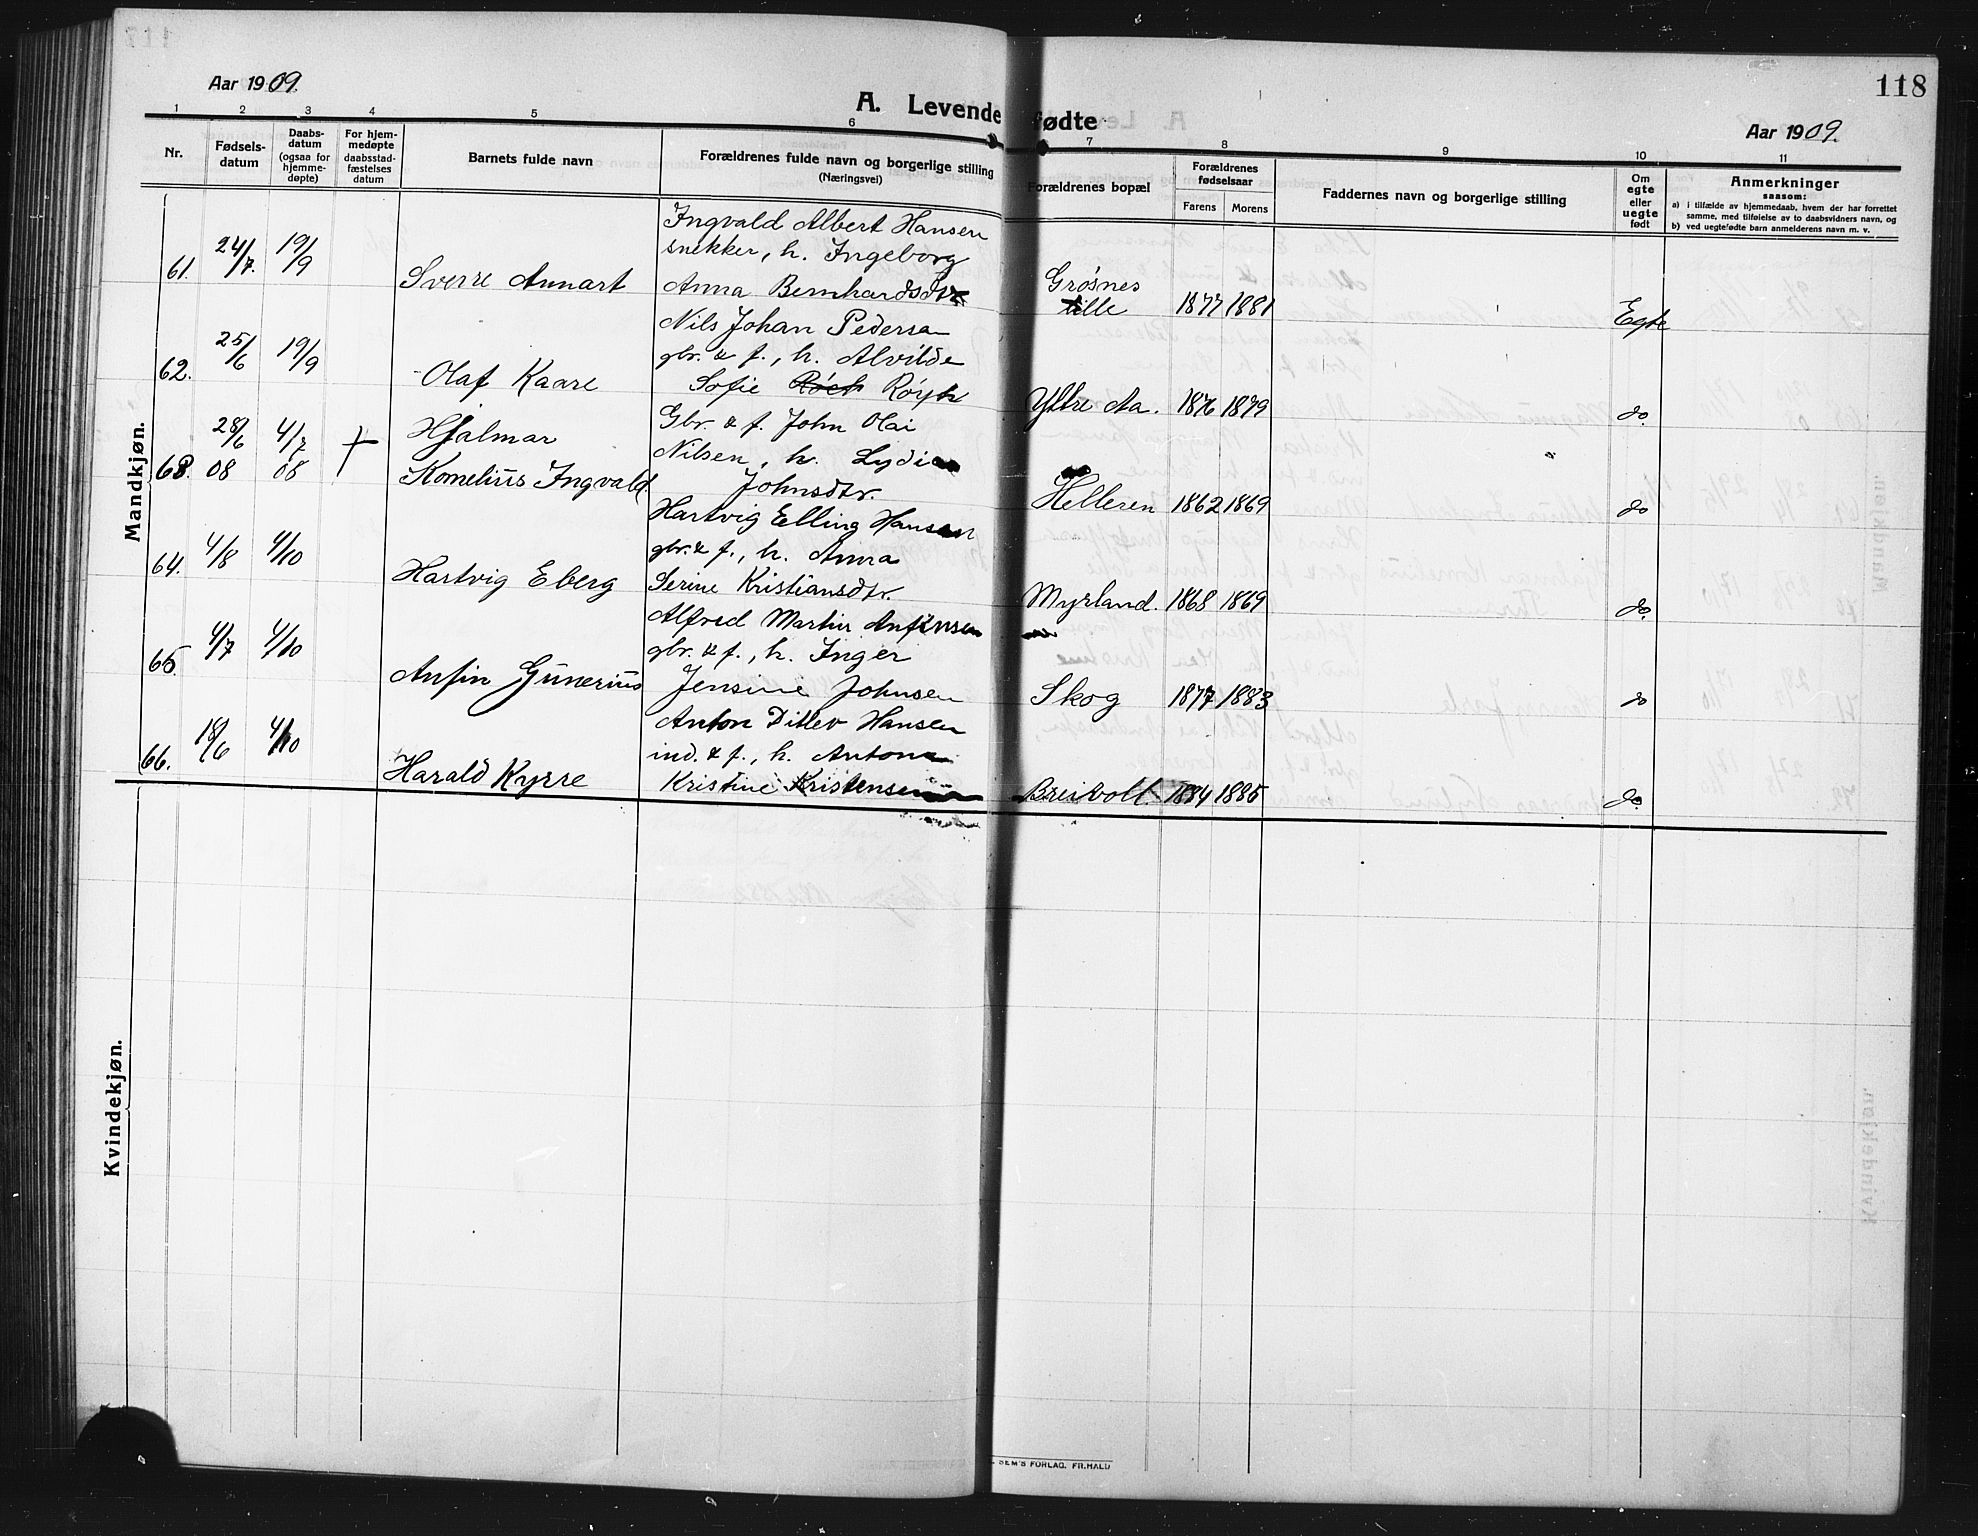 118
Aar 1909.
A. Levende fødte
Aar 1909.
1 2 3 4 5 6 7 8 9 10 11
Nr.
Fødsels-
datum
Daabs-
datum
(ogsaa for
hjemme-
døpte)
For hjem-
medøpte
daabsstad-
fæstelses
datum
Barnets fulde navn
Forældrenes fulde navn og borgerlige stilling
(Næringsvei)
Forældrenes bopæl
Forældrenes
fødselsaar
Farens Morens
Faddernes navn og borgerlige stilling
Om
egte
eller
uegte
født
Anmerkninger
saasom:
a) i tilfælde av hjemmedaab, hvem der har forrettet
samme, med tilføielse av to daabsvidners navn, og
b) ved uegtefødte barn anmelderens navn m. v.
Mandkjøn.
61. 24/7. 19/9 Sverre Annart
Ingvald Albert Hansen
snekker, h. Ingeborg
Anna Bernhardsdtr
Grøsnes
lille 1877 1881 Egte
62. 25/6 19/9 Olaf Kaare
Nils Johan Pedersa
gbr. & f., h. Alvilde
Sofie Røck Røyk
Yttre Aa. 1876 1879 do.
63. 28/6 08 4/7 08 Hjalmar
Kornelius Ingvald.
Gbr. & f. John Olai
Nilsen, h. Lydia
Johnsdtr.
Helleren 1862 1869 do
64. 4/8 4/10 Hartvig Eberg
Hartvig Elling Hansen
gbr. & f., h. Anna
Serine Kristiansdtr.
Myrland. 1868 1869 do.
65. 4/7 4/10 Anfin Gunerius
Alfred Martin Anfinsen
gbr. & f., h. Inger
Jensine Johnsen
Skog 1877 1883 do
66. 18/6 4/10 Harald Kyrre
Anton Ditlev Hansen
ind. & f., h. Antone
Kristine Kristensen
Breivoll 1884 1885 do.
Kvindekjøn.
SEM'S FORLAG, FR.HALD